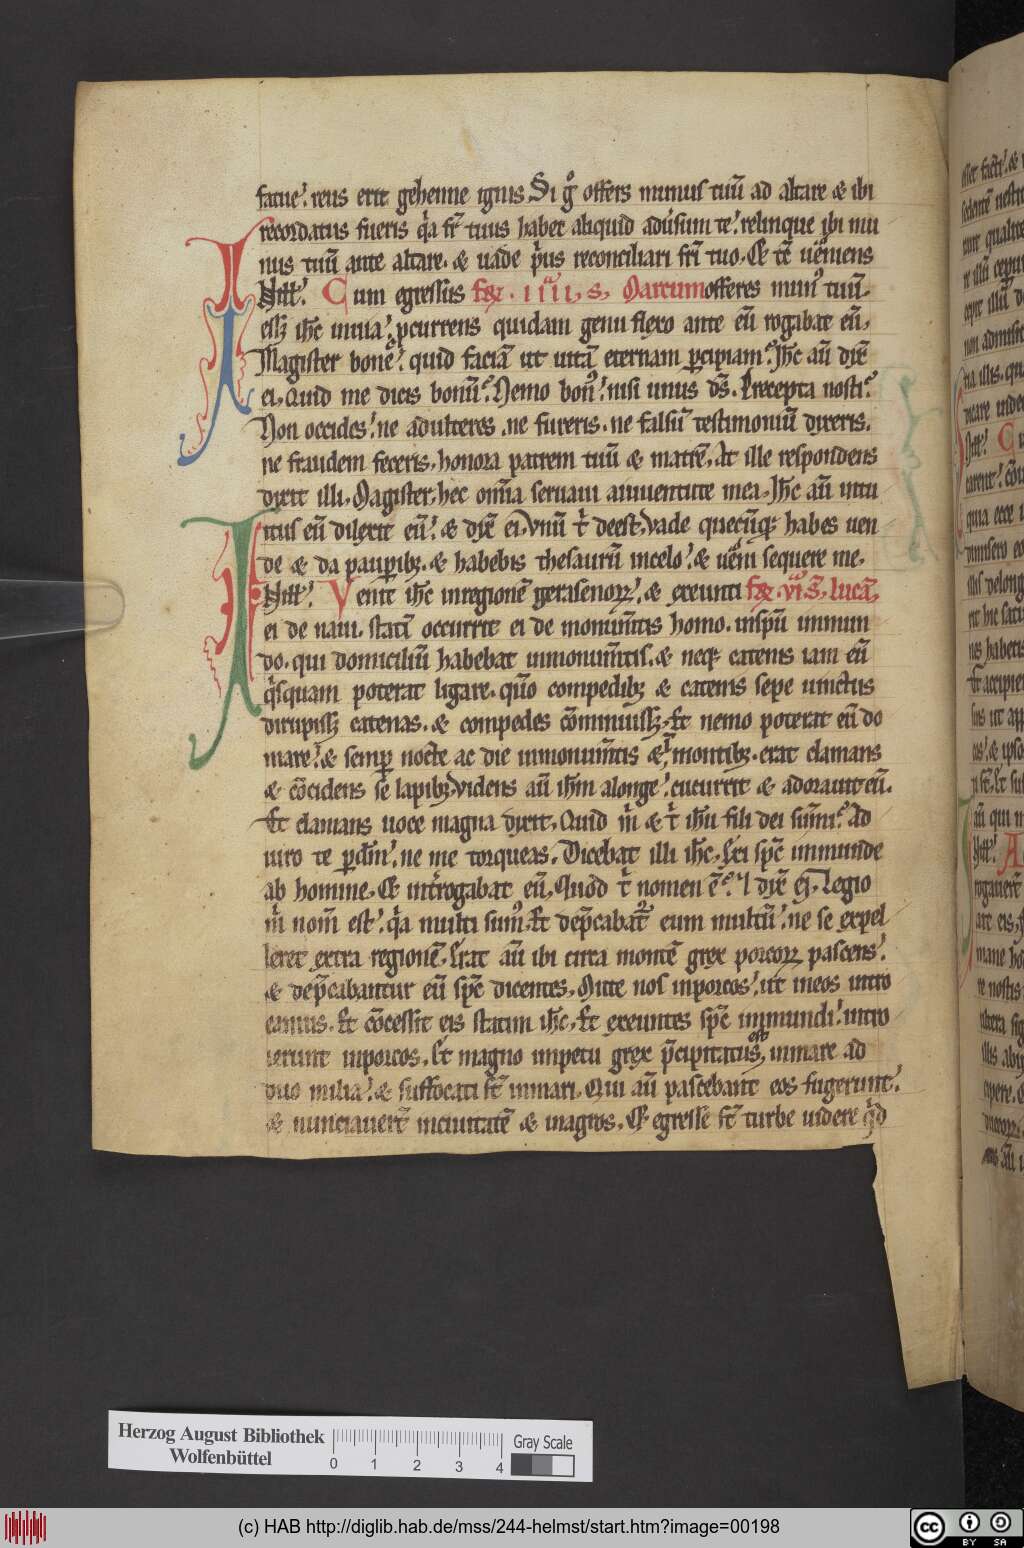 fatue. reus erit gehenne ignis Si gͦ offers munus tuū ad altare & ibi
recordatus fueris qͥa fr̄ tuus habet aliquid aduͥsum te. relinque ibi mu
nus tuū ante altare. & uade pͥus reconciliari fr̄i tuo. Et tc̄ ueniens
offeres mun᷒ tuū.
Nitt. Cum egressus fr̄ .iiii. S. Marcum
ess& ih̄c in uia. pcurrens quidam genu flexo ante eū rogabat eū.
Magister bone. quid faciā ut uitā eternam ꝑcipiam. Ih̄c aū dix̄
ei. Quid me dicis bonū. Nemo bon᷒. nisi unus d̄s. Precepta nosti.
Non occides. ne adulteres. ne fureris. ne falsū testimoniū dixeris.
ne fraudem feceris. honora patrem tuū & matrē. At ille respondens
dixit illi. Magister. hec om̄ia seruaui a iuuentute mea. Ih̄c aū intu
itus eū dilexit eū. & dix̄ ei. Vnū tͥ deest. vade quecūq; habes uen
de & da pauꝑib;. & habebis thesaurū in celo. & ueni sequere me.
Nitt. Venit ih̄c in regionē gerasenoꝝ. & exeunti fr̄ .vi. S. lucā
ei de naui. statī occurrit ei de monum̄tis homo. in sp̄u inmun
do. qui domiciliū habebat in monum̄tis. & neq; catenis iam eū
qͥsquam poterat ligare. qūo compedib; & catenis sepe uinctus
dirupiss& catenas. & compedes cōminuiss&. Et nemo poterat eū do
mare. & semꝑ nocte ac die in monum̄tis & ī montib; erat clamans
& cōcidens se lapib; Videns aū ih̄m a longe. cucurrit & adorauit eū.
Et clamans uoce magna dixit. Quid mͥ & tͥ ih̄u fili dei sum̄i. Ad
iuro te ꝑ dm̄. ne me torqueas. Dicebat illi ih̄c. Exi sp̄c inmunde
ab homine. Et int̄rogabat eū. Quod tͥ nomen ē. dix̄ ei. Legio
mͥ nom̄ est. qͥa multi sum᷒. Et dep̄cabat᷑ eum multū. ne se expel
leret extra regionē. Erat aū ibi circa montē grex porcoꝝ pascens.
& dep̄cabantur eū sp̄c dicentes. Mitte nos in porcos. ut in eos intro
eamus. Et cōcessit eis statim ih̄c. Et exeuntes sp̄c inmundi. intro
ierunt in porcos. Et magno impetu grex p̄cipitatus est in mare ad
duo milia. & suffocati st̄ in mari. Qui aū pascebant eos fugerunt.
& nunciauer̄t in ciuitatē & in agros. Et egresse st̄ turbe uidere qͥd
Herzog August Bibliothek
Wolfenbüttel
0 1 2 3 4
Gray Scale
(c) HAB http://diglib.hab.de/mss/244-helmst/start.htm?image=00198
cc BY SA